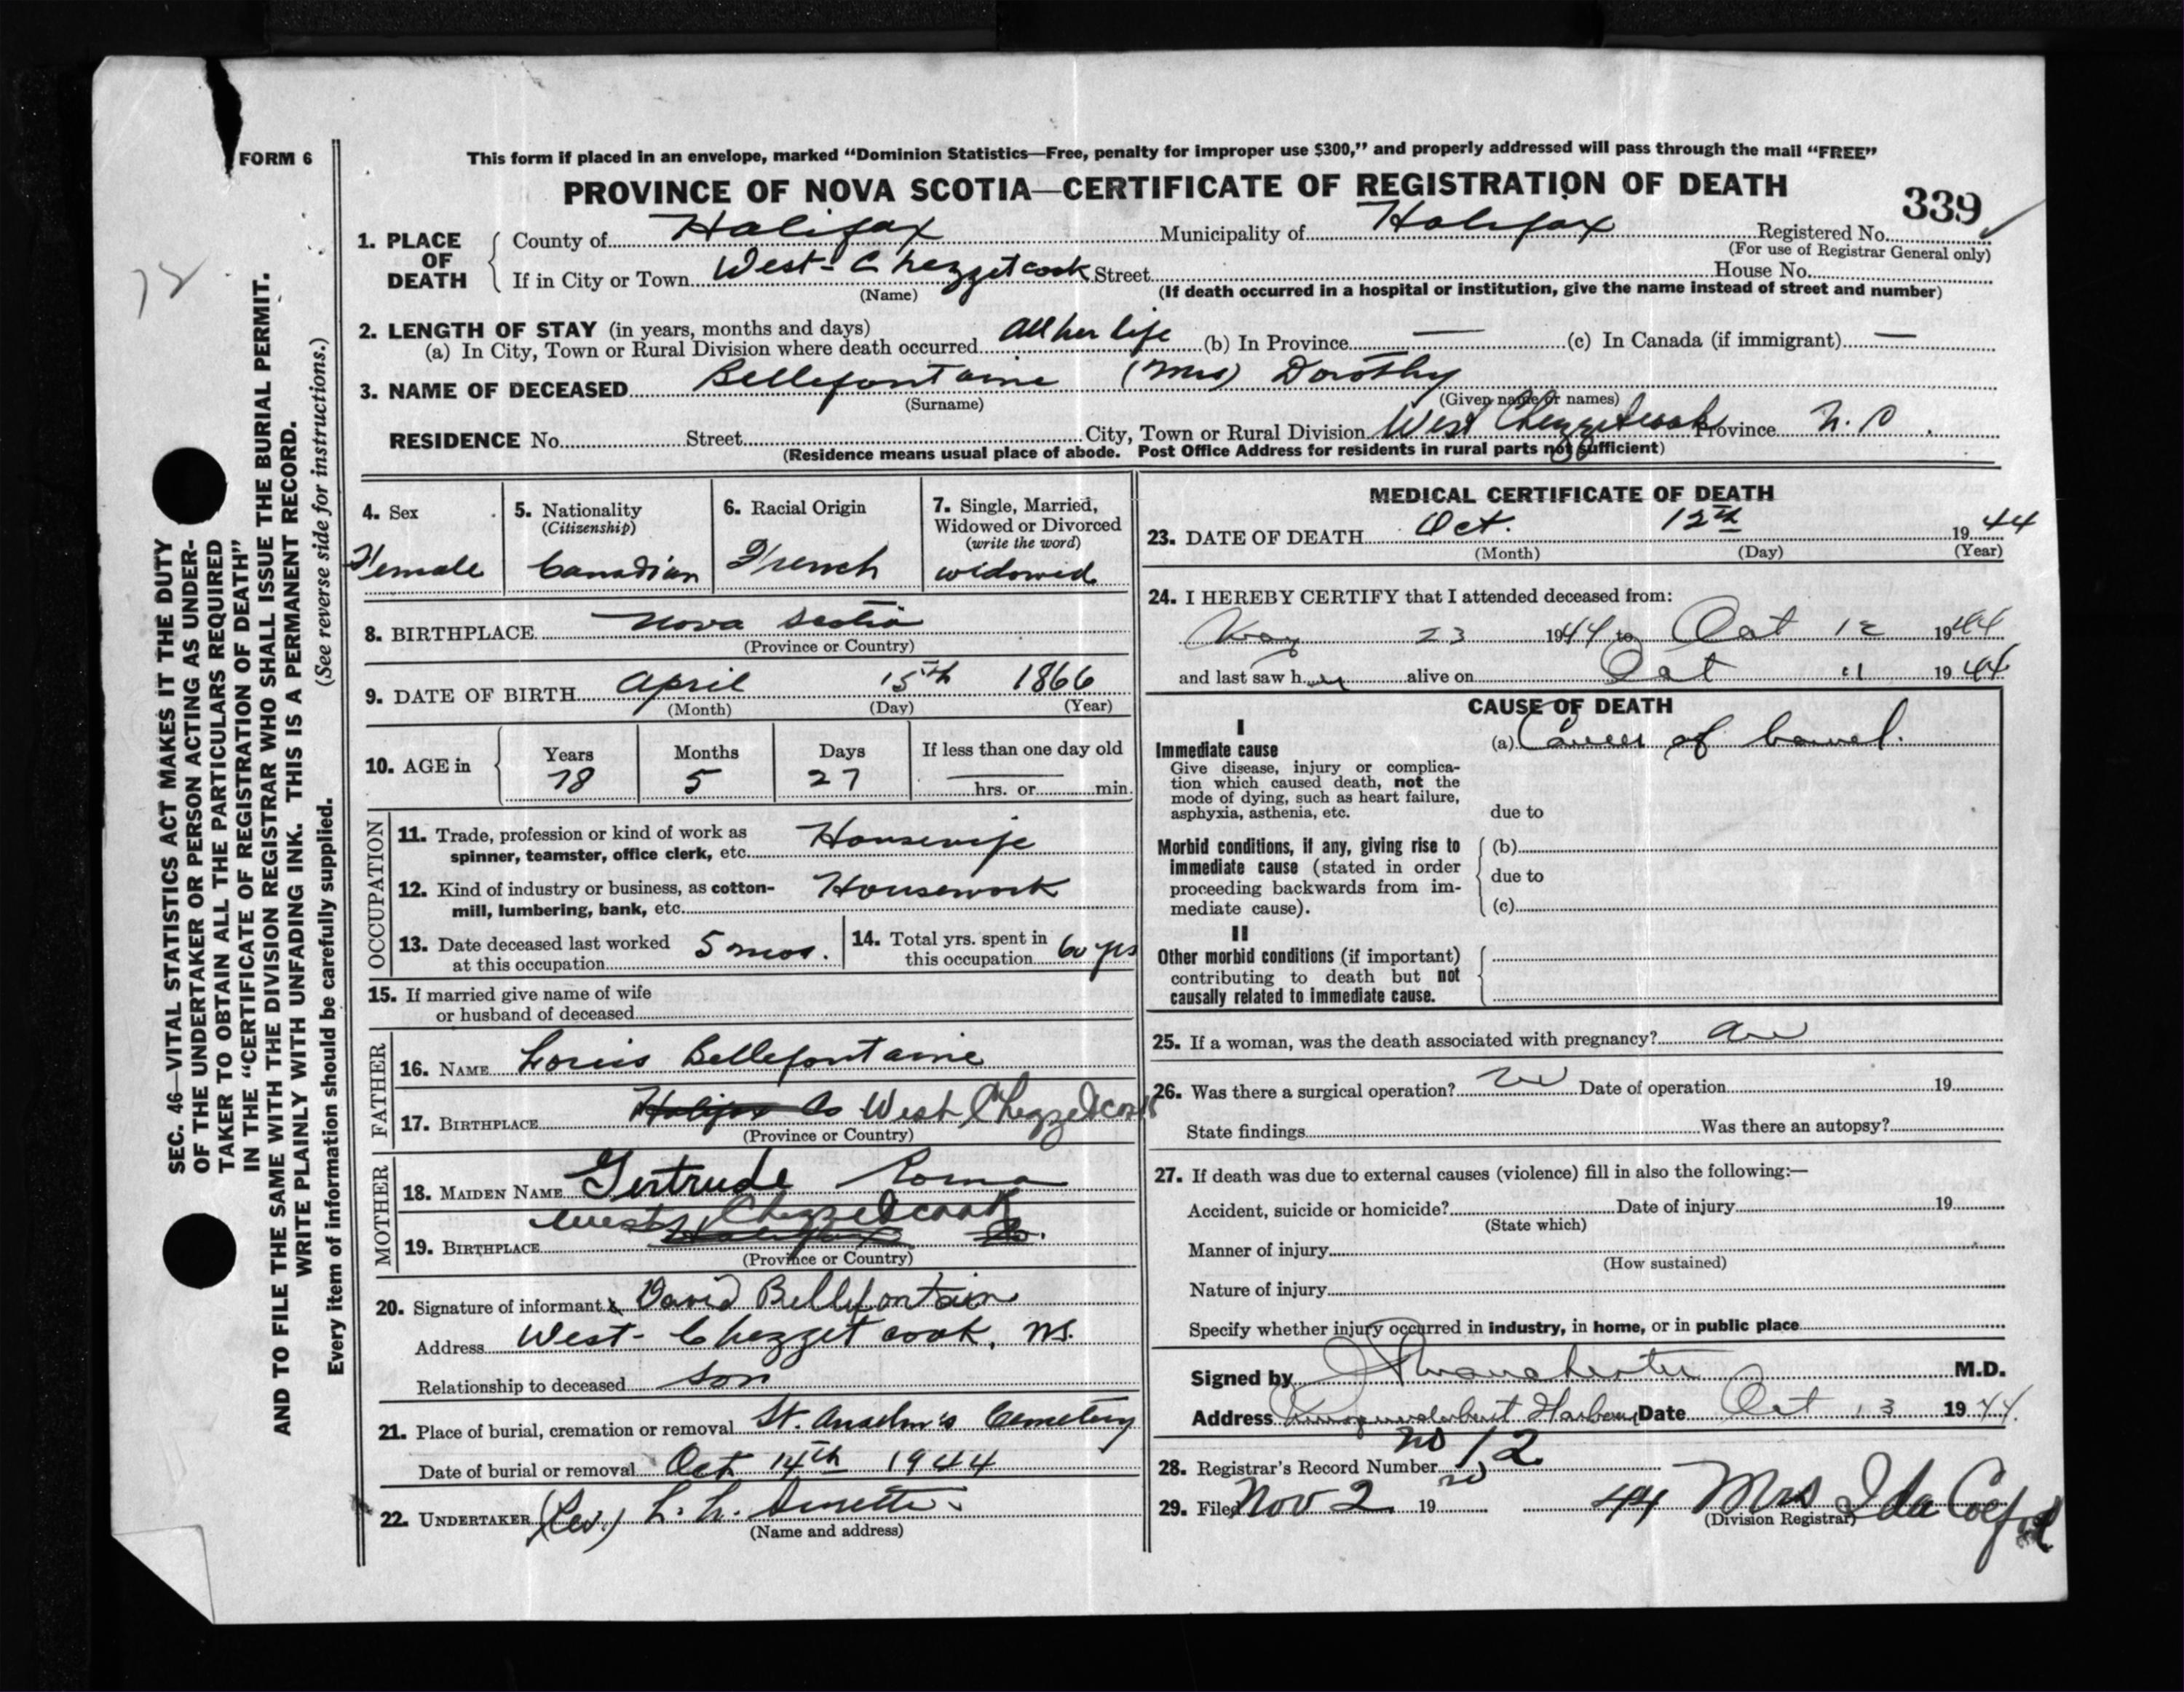 FORM 6
This form if placed in an envelope, marked “Dominion Statistics—Free, penalty for improper use $300,” and properly addressed will pass through the mail “FREE”
PROVINCE OF NOVA SCOTIA—CERTIFICATE OF REGISTRATION OF DEATH
339
1. PLACE OF DEATH
County of Halifax Municipality of Halifax Registered No.
(For use of Registrar General only)
If in City or Town West-Chezzetcook Street House No.
(Name) (If death occurred in a hospital or institution, give the name instead of street and number)
2. LENGTH OF STAY (in years, months and days)
(a) In City, Town or Rural Division where death occurred All her life (b) In Province — (c) In Canada (if immigrant) —
3. NAME OF DECEASED Bellefontaine (Mrs) Dorothy
(Surname) (Given name or names)
RESIDENCE No. Street City, Town or Rural Division West Chezzetcook Province N.S.
(Residence means usual place of abode. Post Office Address for residents in rural parts not sufficient)
4. Sex
Female
5. Nationality
(Citizenship)
Canadian
6. Racial Origin
French
7. Single, Married,
Widowed or Divorced
(write the word)
widowed
8. BIRTHPLACE Nova Scotia
(Province or Country)
9. DATE OF BIRTH April 15th 1866
(Month) (Day) (Year)
10. AGE in
Years Months Days If less than one day old
78 5 27 — hrs. or min.
OCCUPATION
11. Trade, profession or kind of work as
spinner, teamster, office clerk, etc. Housewife
12. Kind of industry or business, as cotton-
mill, lumbering, bank, etc. Housework
13. Date deceased last worked
at this occupation 5 mos.
14. Total yrs. spent in
this occupation 60 yrs
15. If married give name of wife
or husband of deceased
FATHER
16. NAME Louis Bellefontaine
17. BIRTHPLACE Halifax Co West Chezzetcook
(Province or Country)
MOTHER
18. MAIDEN NAME Gertrude Roma
West Chezzedcook
19. BIRTHPLACE Halifax Co.
(Province or Country)
20. Signature of informant x David Bellefontain
Address West-Chezzetcook, NS.
Relationship to deceased Son
21. Place of burial, cremation or removal St. Anselm's Cemetery
Date of burial or removal Oct 14th 1944
22. UNDERTAKER (Rev.)
(Name and address)
MEDICAL CERTIFICATE OF DEATH
23. DATE OF DEATH Oct. 12th 1944
(Month) (Day) (Year)
24. I HEREBY CERTIFY that I attended deceased from:
May 23 1944 to Oct 12 1944
and last saw her alive on Oct 11 1944
CAUSE OF DEATH
I
Immediate cause
Give disease, injury or complica-
tion which caused death, not the
mode of dying, such as heart failure,
asphyxia, asthenia, etc.
(a) Cancer of bowel.
due to
Morbid conditions, if any, giving rise to
immediate cause (stated in order
proceeding backwards from im-
mediate cause).
(b)
due to
(c)
II
Other morbid conditions (if important)
contributing to death but not
causally related to immediate cause.
25. If a woman, was the death associated with pregnancy? no
26. Was there a surgical operation? no Date of operation 19
State findings Was there an autopsy?
27. If death was due to external causes (violence) fill in also the following:—
Accident, suicide or homicide? Date of injury 19
(State which)
Manner of injury
(How sustained)
Nature of injury
Specify whether injury occurred in industry, in home, or in public place
Signed by M.D.
Address Harbour Date Oct 13 1944.
28. Registrar's Record Number no 12
29. Filed Nov 2 nd 19 44 Mrs Ida
(Division Registrar)
SEC. 46—VITAL STATISTICS ACT MAKES IT THE DUTY
OF THE UNDERTAKER OR PERSON ACTING AS UNDER-
TAKER TO OBTAIN ALL THE PARTICULARS REQUIRED
IN THE “CERTIFICATE OF REGISTRATION OF DEATH”
AND TO FILE THE SAME WITH THE DIVISION REGISTRAR WHO SHALL ISSUE THE BURIAL PERMIT.
WRITE PLAINLY WITH UNFADING INK. THIS IS A PERMANENT RECORD.
Every item of information should be carefully supplied. (See reverse side for instructions.)